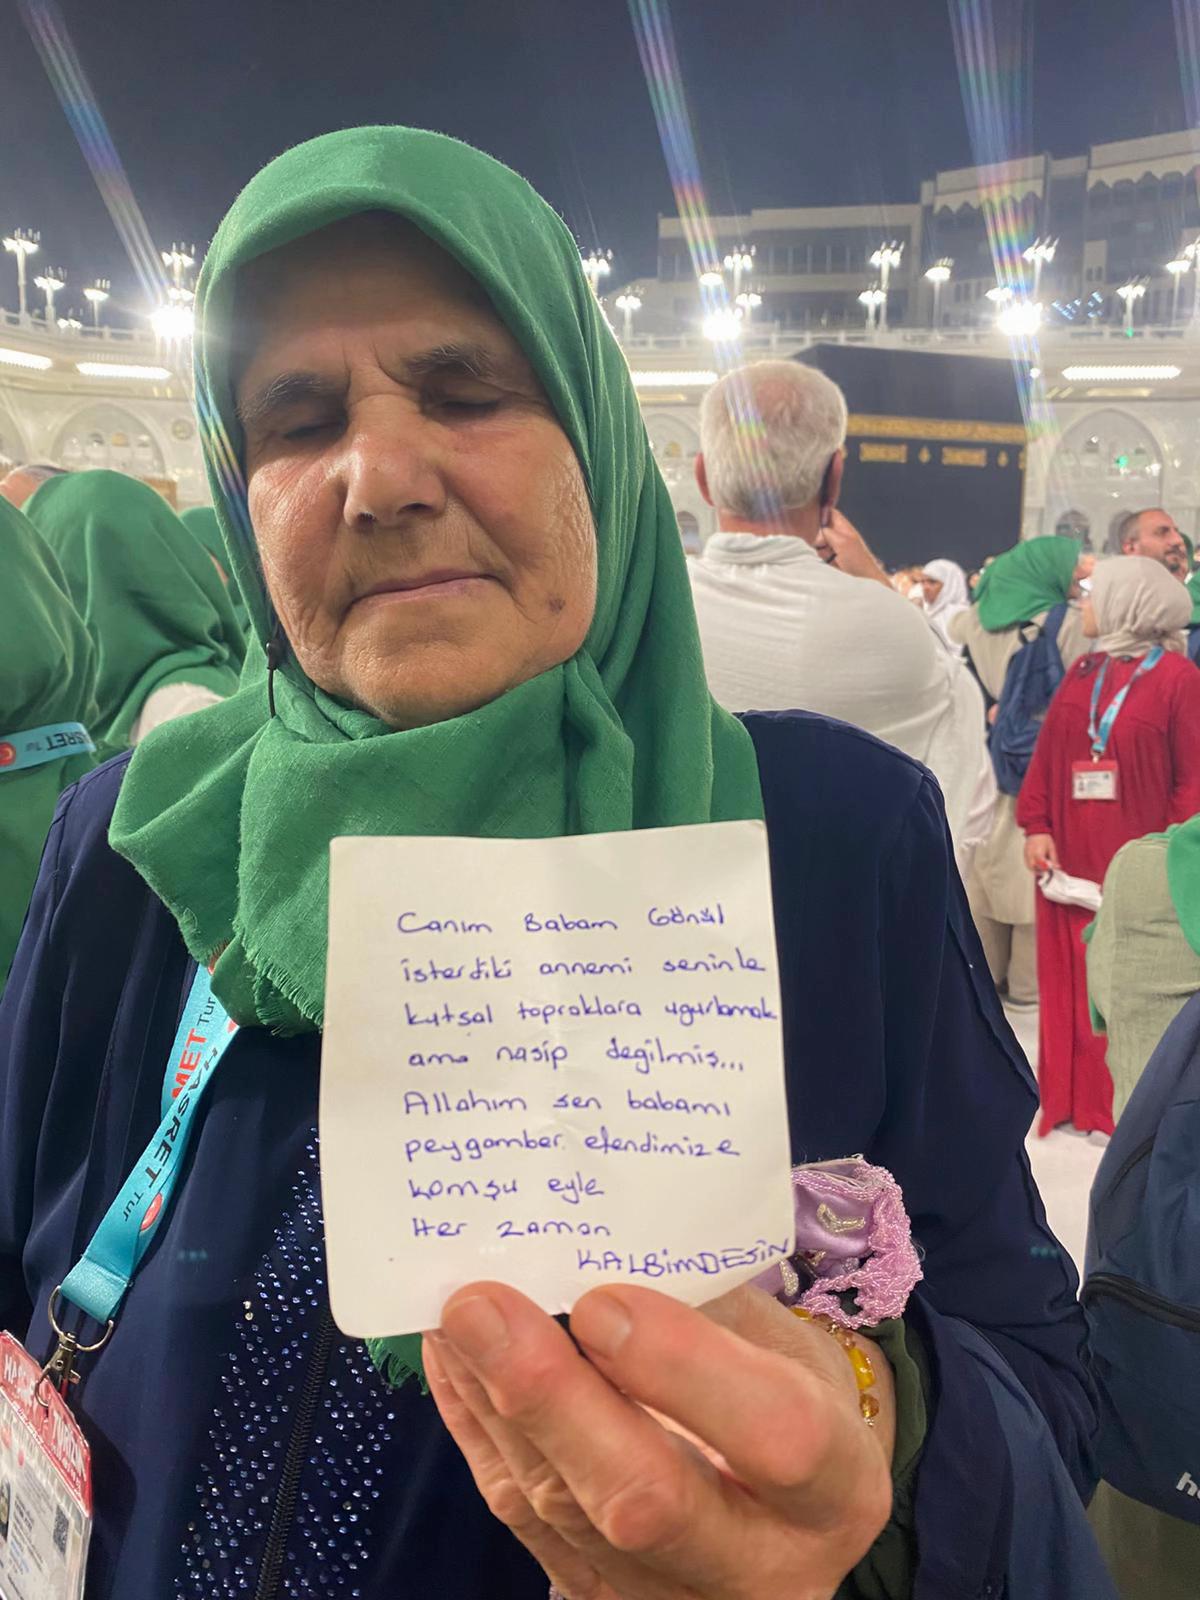 Canım Babam Gönül
isterdiki annemi seninle
kutsal topraklara ugurlamak
ama nasip degilmiş...
Allahım sen babamı
peygamber efendimize
komşu eyle
Her zaman
KALBİMDESİN
HASRET Tur
MET Tur
HASRET Tur